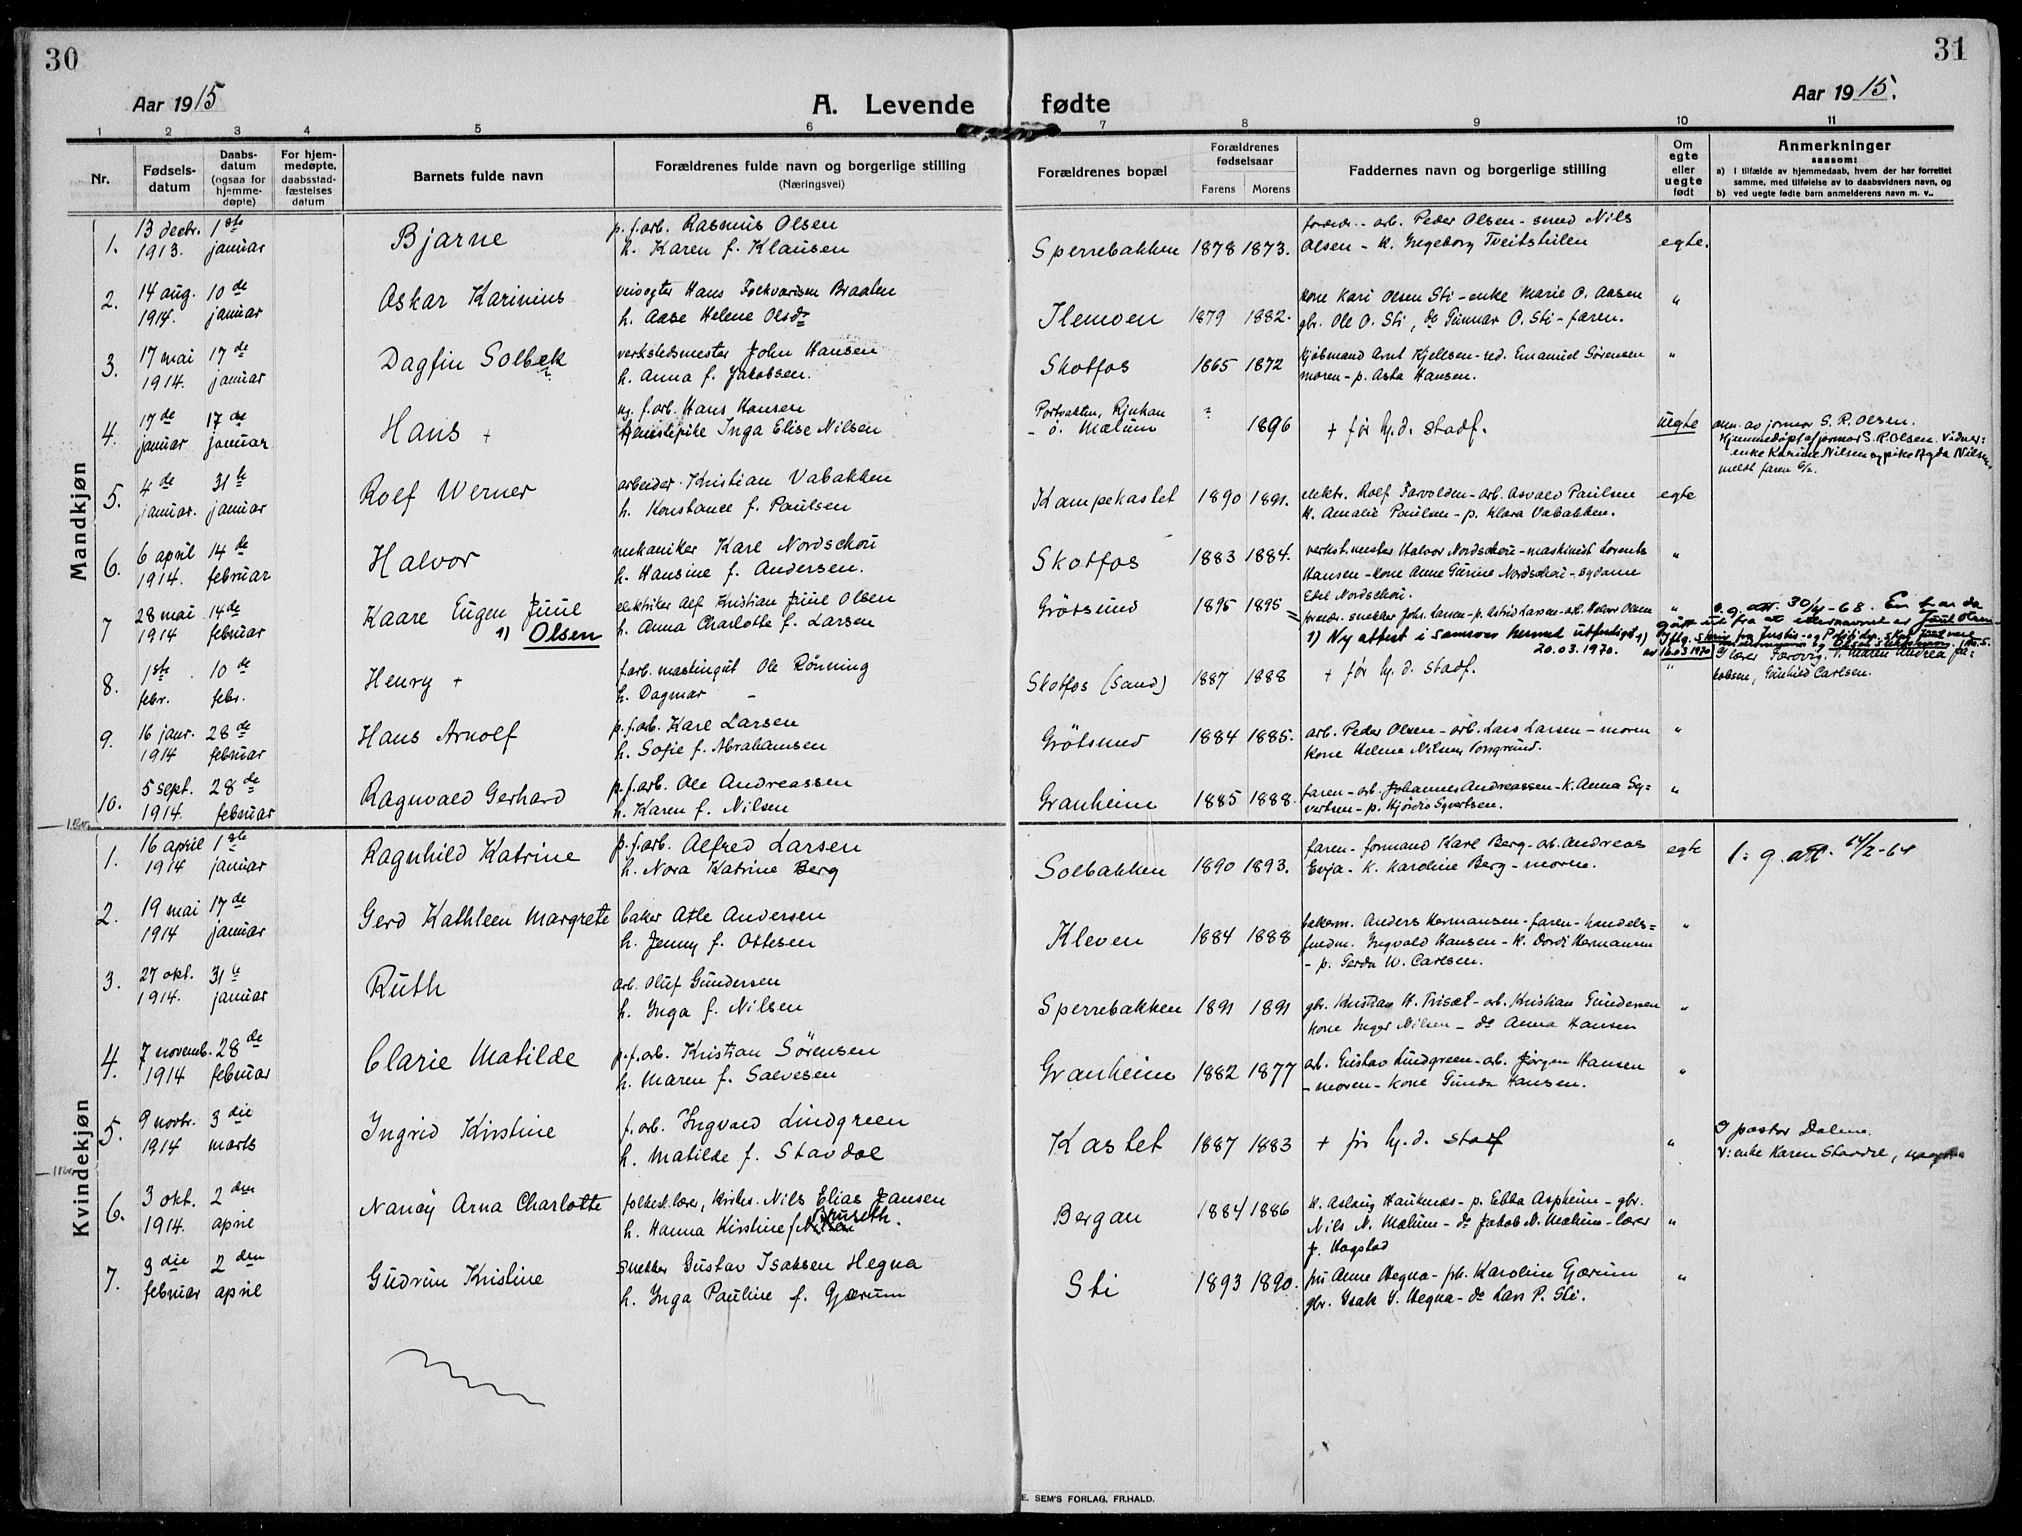 30
31
Aar 1915
A. Levende fødte
Aar 1915.
1 2 3 4 5 6 7 8 9 10 11
Nr.
Fødsels-
datum
Daabs-
datum
(ogsaa for
hjemme-
døpte)
For hjem-
medøpte,
daabsstad-
fæstelses
datum
Barnets fulde navn
Forældrenes fulde navn og borgerlige stilling
(Næringsvei)
Forældrenes bopæl
Forældrenes
fødselsaar
Farens Morens
Faddernes navn og borgerlige stilling
Om
egte
eller
uegte
født
Anmerkninger
saasom:
a) I tilfælde av hjemmedaab, hvem der har forrettet
samme, med tilføielse av to daabsvidners navn, og
b) ved uegte fødte barn anmelderens navn m. v..
Mandkjøn
1. 13 decbr. 1ste Bjarne p. f. arb. Rasmus Olsen Sperrebakken 1878 1873. arb. Peder Olsen - smed Nils egte.
1913. januar h. Karen f. Klausen Olsen - k. Ingeborg Tveitshilen
2. 14 aug. 10de Oskar Karinius veivogter Hans Braaten Ilemoen 1879 1882. kone Kari Olsen Sti - enke Marie O. Aasen "
1914. januar h. Aase Helene Olsdr gbr. Ole O. Sti, do Gunnar O. Sti - faren.
3. 17 mai 17de Dagfin Solbæk verkstedsmester John Hansen Skotfos 1865 1872 kjøbmand Arnt Kjellsen - red. Emanuel Sørensen "
1914. januar h. Anna f. Jakobsen. moren - p. Asta Hansen.
4. 17de 17de Hans + ug. f. arb. Hans Hansen Portvakten, Rjukan ? 1896 + før hj. d. stadf. uegte anm. av jormor S. R. Olsen.
januar januar tjenestepike Inga Elise Nilsen - ö. Mælum Hjemmedøpt af jormor S. R. Olsen. Vidner:
enke Karine Nilsen og pike Nilsen.
meldt faren 6/2.
5. 4de 31te Rolf Werner arbeider Kristian Vabakken Kampekastet 1890 1891. elektr. Rolf Farvolden - arb. Asvald Paulsen egte
januar. januar h. Konstance f. Paulsen k. Amalie Paulsen - p. Klara Vabakken.
6. 6 april 14de Halvor mekaniker Karl Nordschou Skotfos 1883 1884. verkst.mester Halvor Nordschou - maskinist Lorents "
1914. februar h. Hansine f. Andersen. Hansen - kone Anne Gurine Nordschou - sydame
Edel Nordschou.
7 28 mai 14de Kaare Eugen Juul elektriker Alf Kristian Juul Olsen Grötsund 1895 1895 snekker Joh. Larsen - p. Astrid Larsen - arb. Halvor Olsen " g. att. 30/4-68. En har da
1914 februar 1) Olsen h. Anna Charlotte f. Larsen 1) Ny attest i samsvar hermed utferdiget gått ut fra at etternavnet er Juul Olsen
20.03.1970. 1) Iflg. skriv fra Justis- og Politidep.
av 16.03.1970
8. 1ste 10de Henry + f. arb. Ole Rönning Skotfos (Sand) 1887 1888 + før hj. d. stadf. " lærer Maren Andrea Ja=
febr. febr. h. Dagmar - kobsen, Gunhild Carlsen.
9. 16 janr. 28de Hans Arnolf p. f. arb. Karl Larsen Grötsund 1884 1885. arb. Peder Olsen - arb. Lars Larsen - moren "
1914 februar h. Sofie f. Abrahamsen kone Helene Nilsen, Porsgrund.
10. 5 sept. 28de Ragnvald Gerhard p. f. arb. Ole Andreassen Granheim 1885 1888. faren - arb. Johannes Andreassen - k. Anna Sy= "
1914. februar h. Karen f. Nilsen vertsen - p. Hjördis Syvertsen.
Kvindekjøn
1. 16 april 1ste Ragnhild Katrine p. f. arb. Alfred Larsen Solbakken 1890 1893. faren - formand Karl Berg - arb. Andreas egte 1: g. att. 14/2-64
1914 januar h. Nora Katrine Berg Evja - k. Karoline Berg - morne.
2. 19 mai 17de Gerd Kathleen Margrete baker Atle Andersen Kleven 1884 1888 bakerm. Anders Hermansen - faren - handels= "
1914 januar h. Jenny f. Ottesen fuldm. Ingvald Hansen - k. Dordi Hermansen
- p. Gerda W. Carlsen.
3. 27 okt. 31te Ruth arb. Oluf Gundersen Sperrebakken 1891 1891 gbr. Kristian H. Trisæt - arb. Kristian Gundersen "
1914. januar h. Inga f. Nilsen kone Inger Nilsen - do Anna Hansen
4. 7 novemb. 28de Clarie Matilde p. f. arb. Kristian Sörensen Granheim 1882 1877 arb. Gustav Lindgreen - arb. Jörgen Hansen "
1914 februar h. Maren f. Salvesen - moren - kone Gunda Hansen.
5. 9 novbr. 3die Ingrid Kirstine f. arb. Ingvald Lindgreen Kastet 1887 1883 + før hj. d. stadf " pastor Dalene.
1914 marts h. Matilde f. Stavdal V: enke Karen Stavdal,
6. 3 okt. 2den Nancy Arna Charlotte folkesk. lærer, kirkes. Nils Elias Jansen Bergan 1884 1886 k. Aslaug Hauknæs - p. Ebba Aspheim - gbr. "
1914. april h. Hanna Kirstine f. Bruseth. Nils N. Mælum - do Jakob N. Mælum - lærer
J. Hogstad
7. 3die 2den Gudrun Kristine snekker Gustav Isaksen Hegna Sti 1893 1890. fru Anne Hegna - frk. Karoline Gjærum "
februar april h. Inga Pauline f. Gjærum gbr. Isak I. Hegna - do Lars P. Sti.
E. SEM'S FORLAG, FR.HALD.